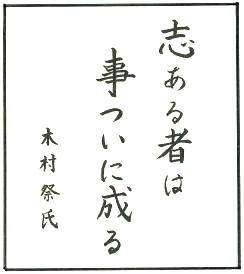 志ある者は
事ついに成る
木村祭氏